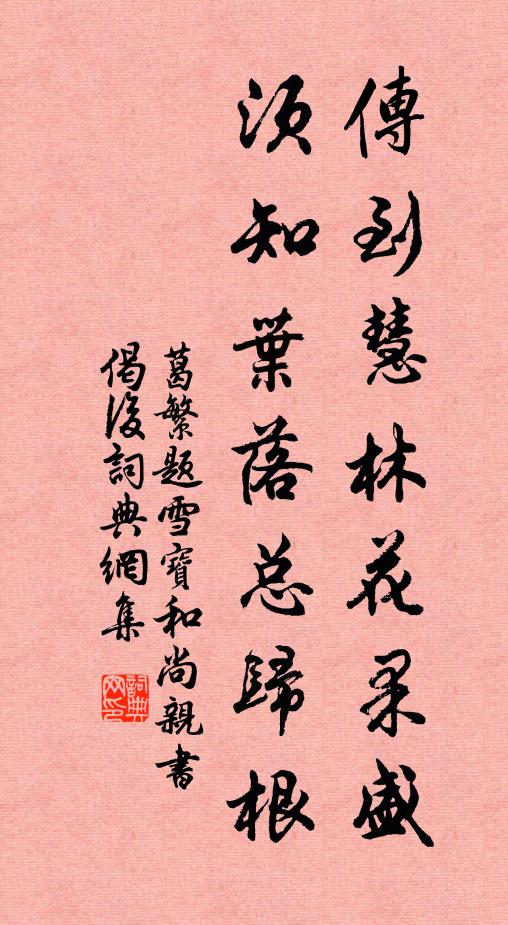 傳到慧林花果盛
須知葉落總歸根
葛繁題雪寶和尚親書
偈後詞典網集
詞典
网印